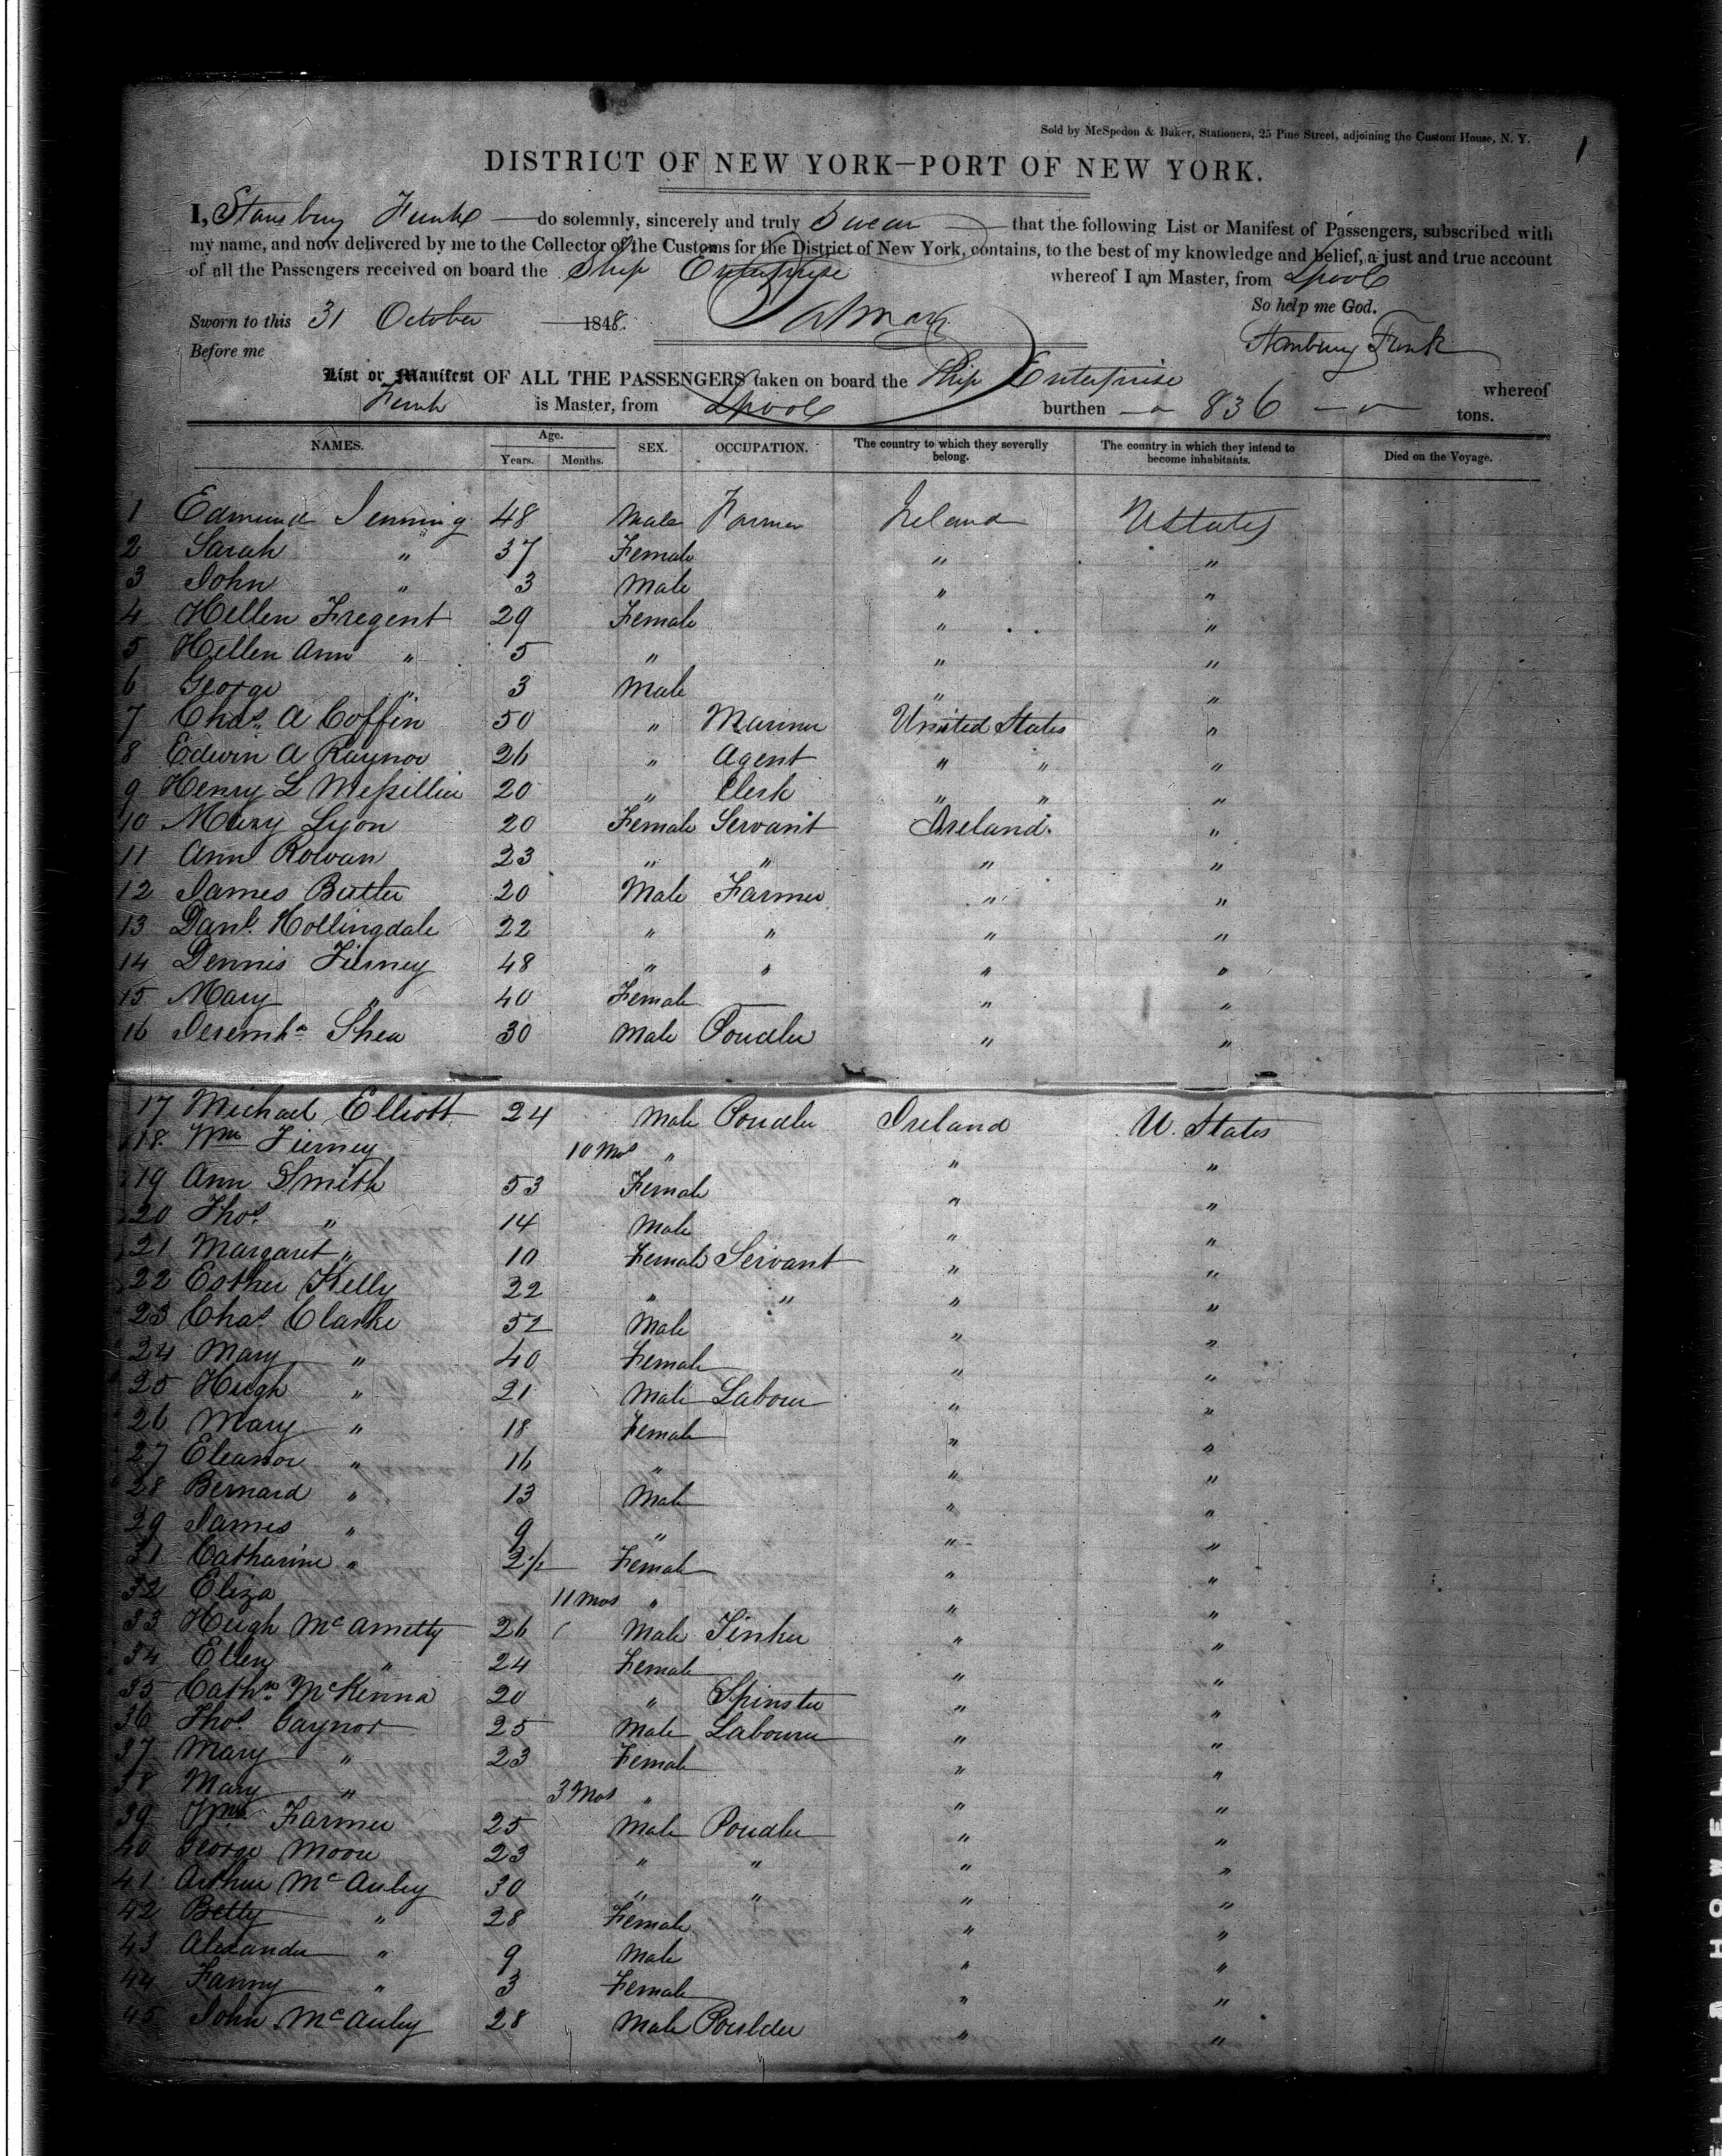 Sold by McSpedon & Baker, Stationers, 25 Pine Street, adjoining the Custom House, N. Y.
1
DISTRICT OF NEW YORK—PORT OF NEW YORK.
I, Stansbury Funk do solemnly, sincerely and truly Swear that the following List or Manifest of Passengers, subscribed with
my name, and now delivered by me to the Collector of the Customs for the District of New York, contains, to the best of my knowledge and belief, a just and true account
of all the Passengers received on board the Ship Enterprise whereof I am Master, from Lpool
So help me God.
Sworn to this 31 October 1848.
Stansbury Funk
Before me
List or Manifest OF ALL THE PASSENGERS taken on board the Ship Enterprise whereof
Funk is Master, from Lpool burthen 836 tons.
NAMES. Age. Years. Months. SEX. OCCUPATION. The country to which they severally belong. The country in which they intend to become inhabitants. Died on the Voyage.
1 Edmund Jenning 48 Male Farmer Ireland UStates
2 Sarah " 37 Female " "
3 John " 3 Male " "
4 Hellen Fregent 29 Female " "
5 Hellen Ann " 5 " " "
6 George " 3 Male " "
7 Chas. A Coffin 50 " Mariner United States "
8 Edwin A Raynor 26 " Agent " " "
9 Henry L 20 " Clerk " " "
10 Mary Lyon 20 Female Servant Ireland. "
11 Ann Rowan 23 " " " "
12 James Butler 20 Male Farmer " "
13 Danl. Hollingdale 22 " " " "
14 Dennis Tierney 48 " " " "
15 Mary " 40 Female — " "
16 Shea 30 Male " "
17 Michael Elliott 24 Male Ireland U. States
18 Wm Tierney 10 Mos " " "
19 Ann Smith 53 Female " "
20 Thos. " 14 Male " "
21 Margaret " 10 Female Servant " "
22 Esther Kelly 22 " " " "
23 Chas Clarke 52 Male " "
24 Mary " 40 Female " "
25 Hugh " 21 Male Labour " "
26 Mary " 18 Female " "
27 Eleanor " 16 " " "
28 Bernard " 13 Male " "
29 James " 9 " " "
31 Catharine " 2 1/2 Female " "
32 Eliza 11 Mos " " "
33 Hugh 26 Male Tinker " "
34 Ellen " 24 Female " "
35 Cathne McKenna 20 " Spinster " "
36 Thos. Gaynor 25 Male Labourer " "
37 Mary " 23 Female " "
38 Mary " 3 Mos " " "
39 Wm Farmer 25 Male " "
40 George Moore 23 " " " "
41 Arthur McAuley 30 " " " "
42 Betty " 28 Female " "
43 Alexander " 9 Male " "
44 Fanny " 3 Female " "
45 John McAuley 28 Male " "